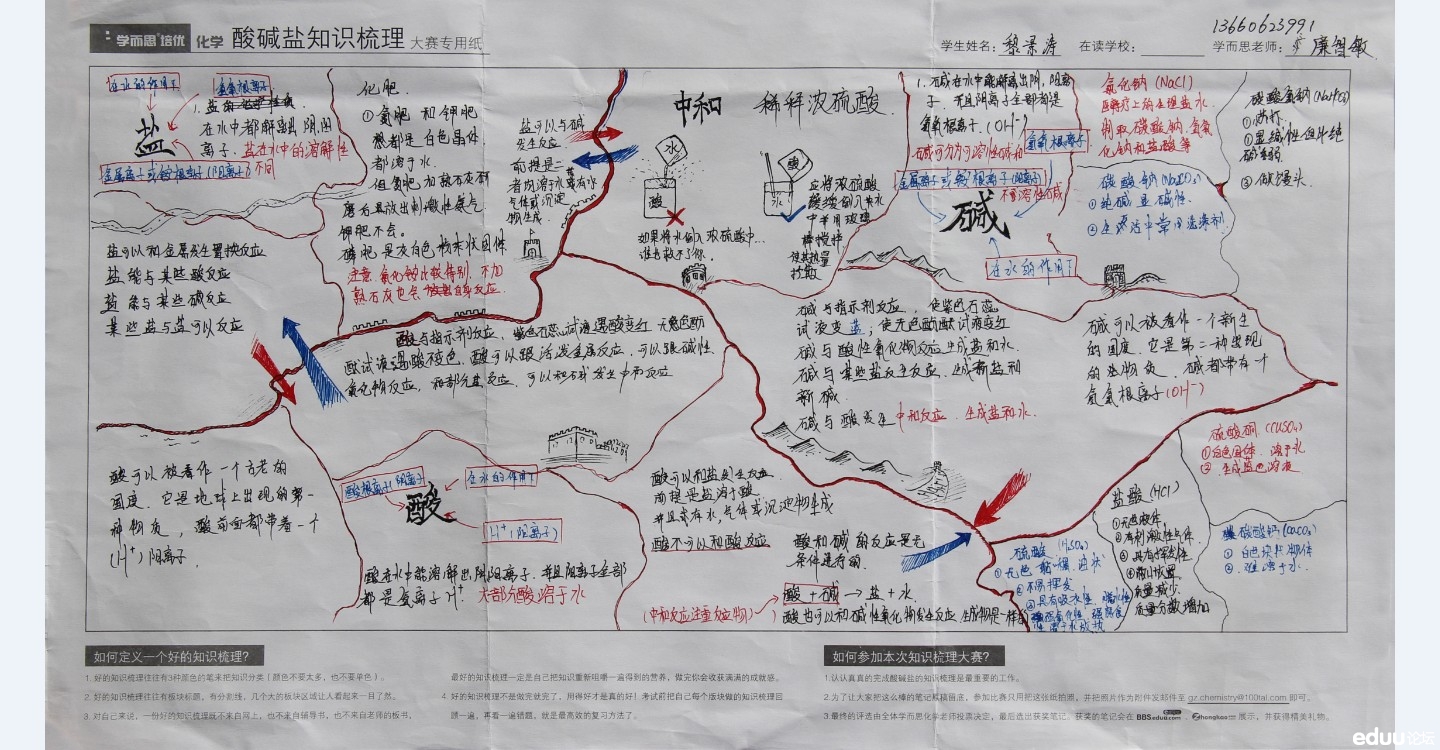 学而思培优 化学 酸碱盐知识梳理 大赛专用纸
13660623991
学生姓名：黎景涛 在读学校： 学而思老师： 廉智敏
在水的作用下
氢氧根离子
1. 盐
在水中都解离出 阴、阳
离子. 盐在水中的溶解性
不同
盐
金属离子或铵根离子(阳离子)
盐可以和金属发生置换反应
盐 能与某些酸反应
盐 能与某些碱反应
某些盐与盐可以反应
化肥
①氮肥 和 钾肥
都是白色晶体
都溶于水.
但氮肥加熟石灰研
磨后且放出刺激性氨气
钾肥不会.
磷肥是灰白色粉末状固体
注意.氯化铵比较特别.不加
熟石灰也会
盐可以与碱
发生反应
前提是二
者均溶于水或有水
气体或沉淀
物生成.
中和 稀释浓硫酸
水
酸
如果将水倒入浓硫酸中…
谁也救不了你.
酸
水
应将浓硫酸
缓缓倒入装水
中并用玻璃
棒搅拌
使其热量
扩散
1. 碱在水中能解离出阴、阳离
子. 并且阴离子全部都是
氢氧根离子.(OH⁻)
碱可分为可溶性碱和
不溶性碱
氢氧根离子
金属离子或铵根离子(阳离子)
碱
在水的作用下
氯化钠(NaCl)
医疗上的生理盐水.
制取碳酸钠.氢氧
化钠和盐酸等
碳酸钠(Na₂CO₃)
①纯碱 显碱性.
②生活中常用洗涤剂.
碳酸氢钠(NaHCO₃)
②显碱性但比纯
碱弱.
③做馒头.
酸与指示剂反应, 紫色石蕊试液遇酸变红 无色酚
酞试液遇酸不变色. 酸可以跟活泼金属反应. 可以跟碱性
氧化物反应. 和部分盐反应. 可以和碱发生中和反应
碱与指示剂反应, 使紫色石蕊
试液变蓝; 使无色酚酞试液变红
碱与酸性氧化物反应生成盐和水.
碱与某些盐反生反应. 生成新盐和
新碱.
碱与酸发生中和反应. 生成盐和水.
碱可以被看作一个新生
的国度. 它是第二种出现
的生物质. 碱都带有一个
氢氧根离子(OH⁻)
硫酸铜(CuSO₄)
①白色固体. 溶于水
②生成蓝色溶液
酸可以被看作一个古老的
国度. 它是地球上出现的第一
种物质, 酸前面都带着一个
(H⁺)阳离子
酸根离子(阴离子)
在水的作用下
酸
H⁺(阳离子)
酸在水中能溶解出阴阳离子. 并且阳离子全部
都是氢离子H⁺. 大部分酸溶于水
酸可以和盐发生反应
前提是盐溶于酸.
并且或有水,气体或沉淀物生成
酸不可以和酸反应
酸和碱的反应是无
条件进行的.
(中和反应注重反应物)
酸 + 碱 → 盐 + 水.
酸也可以和碱性氧化物发生反应. 生成物是一样的
硫酸(H₂SO₄)
②不易挥发
盐酸(HCl)
①无色液体.
②有刺激性气体.
③具有挥发性
④敞口放置.
质量减少.
质量分数增加
碳酸钙(CaCO₃)
①白色块状物体
②难溶于水.
如何定义一个好的知识梳理?
1. 好的知识梳理往往有3种颜色的笔来把知识分类（颜色不要太多，也不要单色）。
2. 好的知识梳理往往有板块标题，有分割线，几个大的板块区域让人看起来一目了然。
3. 对自己来说，一份好的知识梳理既不来自网上，也不来自辅导书，也不来自老师的板书，
最好的知识梳理一定是自己把知识重新咀嚼一遍得到的营养，做完你会收获满满的成就感。
4. 好的知识梳理不是做完就完了，用得好才是真的好！考试前把自己每个版块做的知识梳理回
顾一遍，再看一遍错题，就是最高效的复习方法了。
如何参加本次知识梳理大赛?
1.认认真真的完成酸碱盐的知识梳理是最重要的工作。
2.为了让大家把这么棒的笔记原稿留底，参加比赛只用把这张纸拍照，并把照片作为附件发邮件至 gz.chemistry@100tal.com 即可。
3.最终的评选由全体学而思化学老师投票决定，最后选出获奖笔记。获奖的笔记会在 BBSeduu.com、zhongkao 展示，并获得精美礼物。
eduu论坛